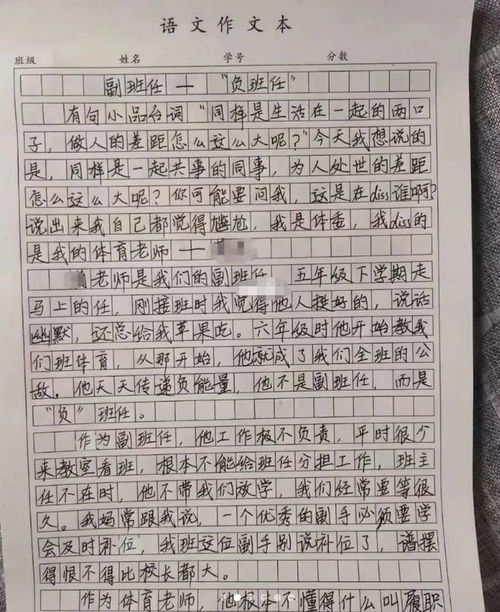 语文作文本
班级 姓名 学号 分数
副班任——“负班任”
有句小品台词“同样是生活在一起的两口
子，做人的差距怎么这么大呢？”今天我想说的
是，同样是一起共事的同事，为人处世的差距
怎么这么大呢？你可能要问我，这是在diss谁啊？
说出来我自己都觉得尴尬，我是体委，我diss的
是我的体育老师——
老师是我们的副班任，五年级下学期走
马上的任，刚接班时我觉得他人挺好的，说话
幽默，还总给我苹果吃。六年级时他开始教我
们班体育，从那开始，他就成了我们全班的公
敌。他天天传递负能量，他不是副班任，而是
“负”班任。
作为副班任，他工作极不负责，平时很少
来教室看班，根本不能给班任分担工作，班主
任不在时，他不带我们放学，我们经常要等很
久。我妈常跟我说，一个优秀的副手必须要学
会及时补位，我班这位副手别说补位了，谱摆
得恨不得比校长都大。
作为体育老师，他根本不懂得什么叫履职